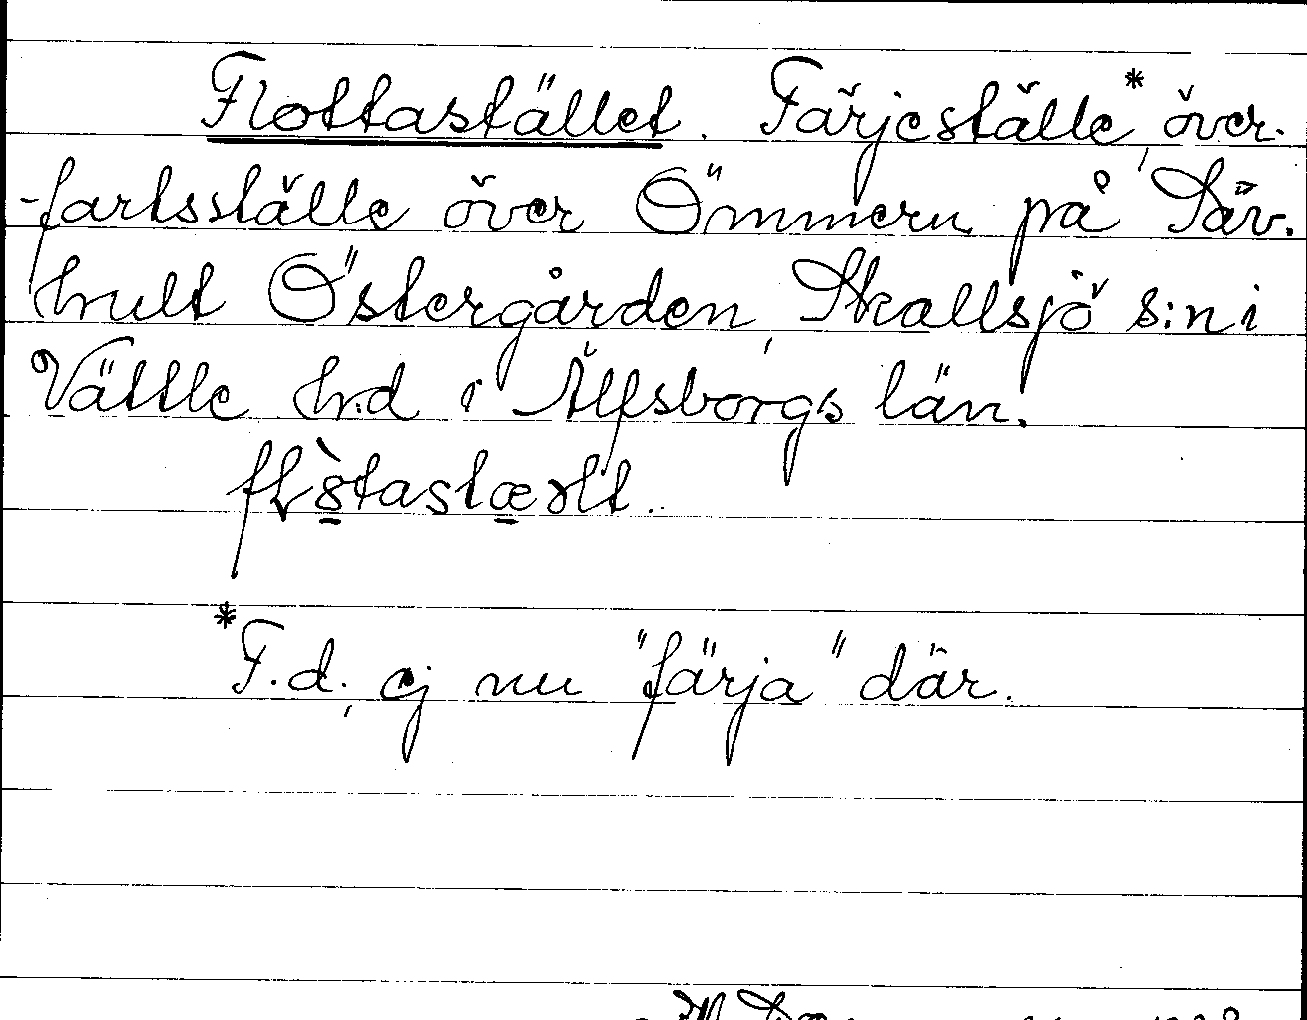 Flottastället. Färjeställe*, över-
-fartsställe över Ömmern på Säv.
hult Östergården, Skallsjö s:n i
Vättle hd i Älfsborgs län.
*F.d., ej nu "färja" där.